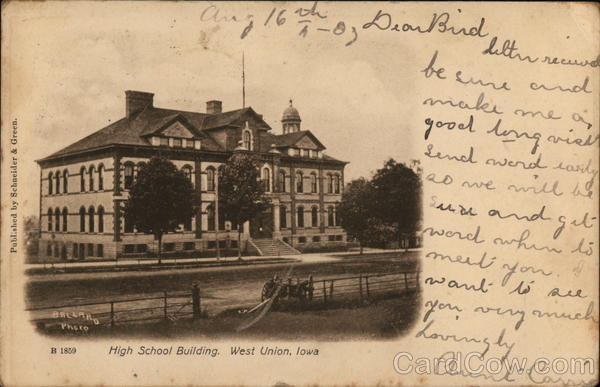 Aug 16th
Dear Bird
recieved
be sure and
make me a
good long visit
Send word early
so we will be
sure and get
word when to
meet you. I
want to see
you very much
Lovingly
Aunt
Published by Schneider & Green.
BALLARD
Photo
B 1859 High School Building. West Union, Iowa
CardCow.com